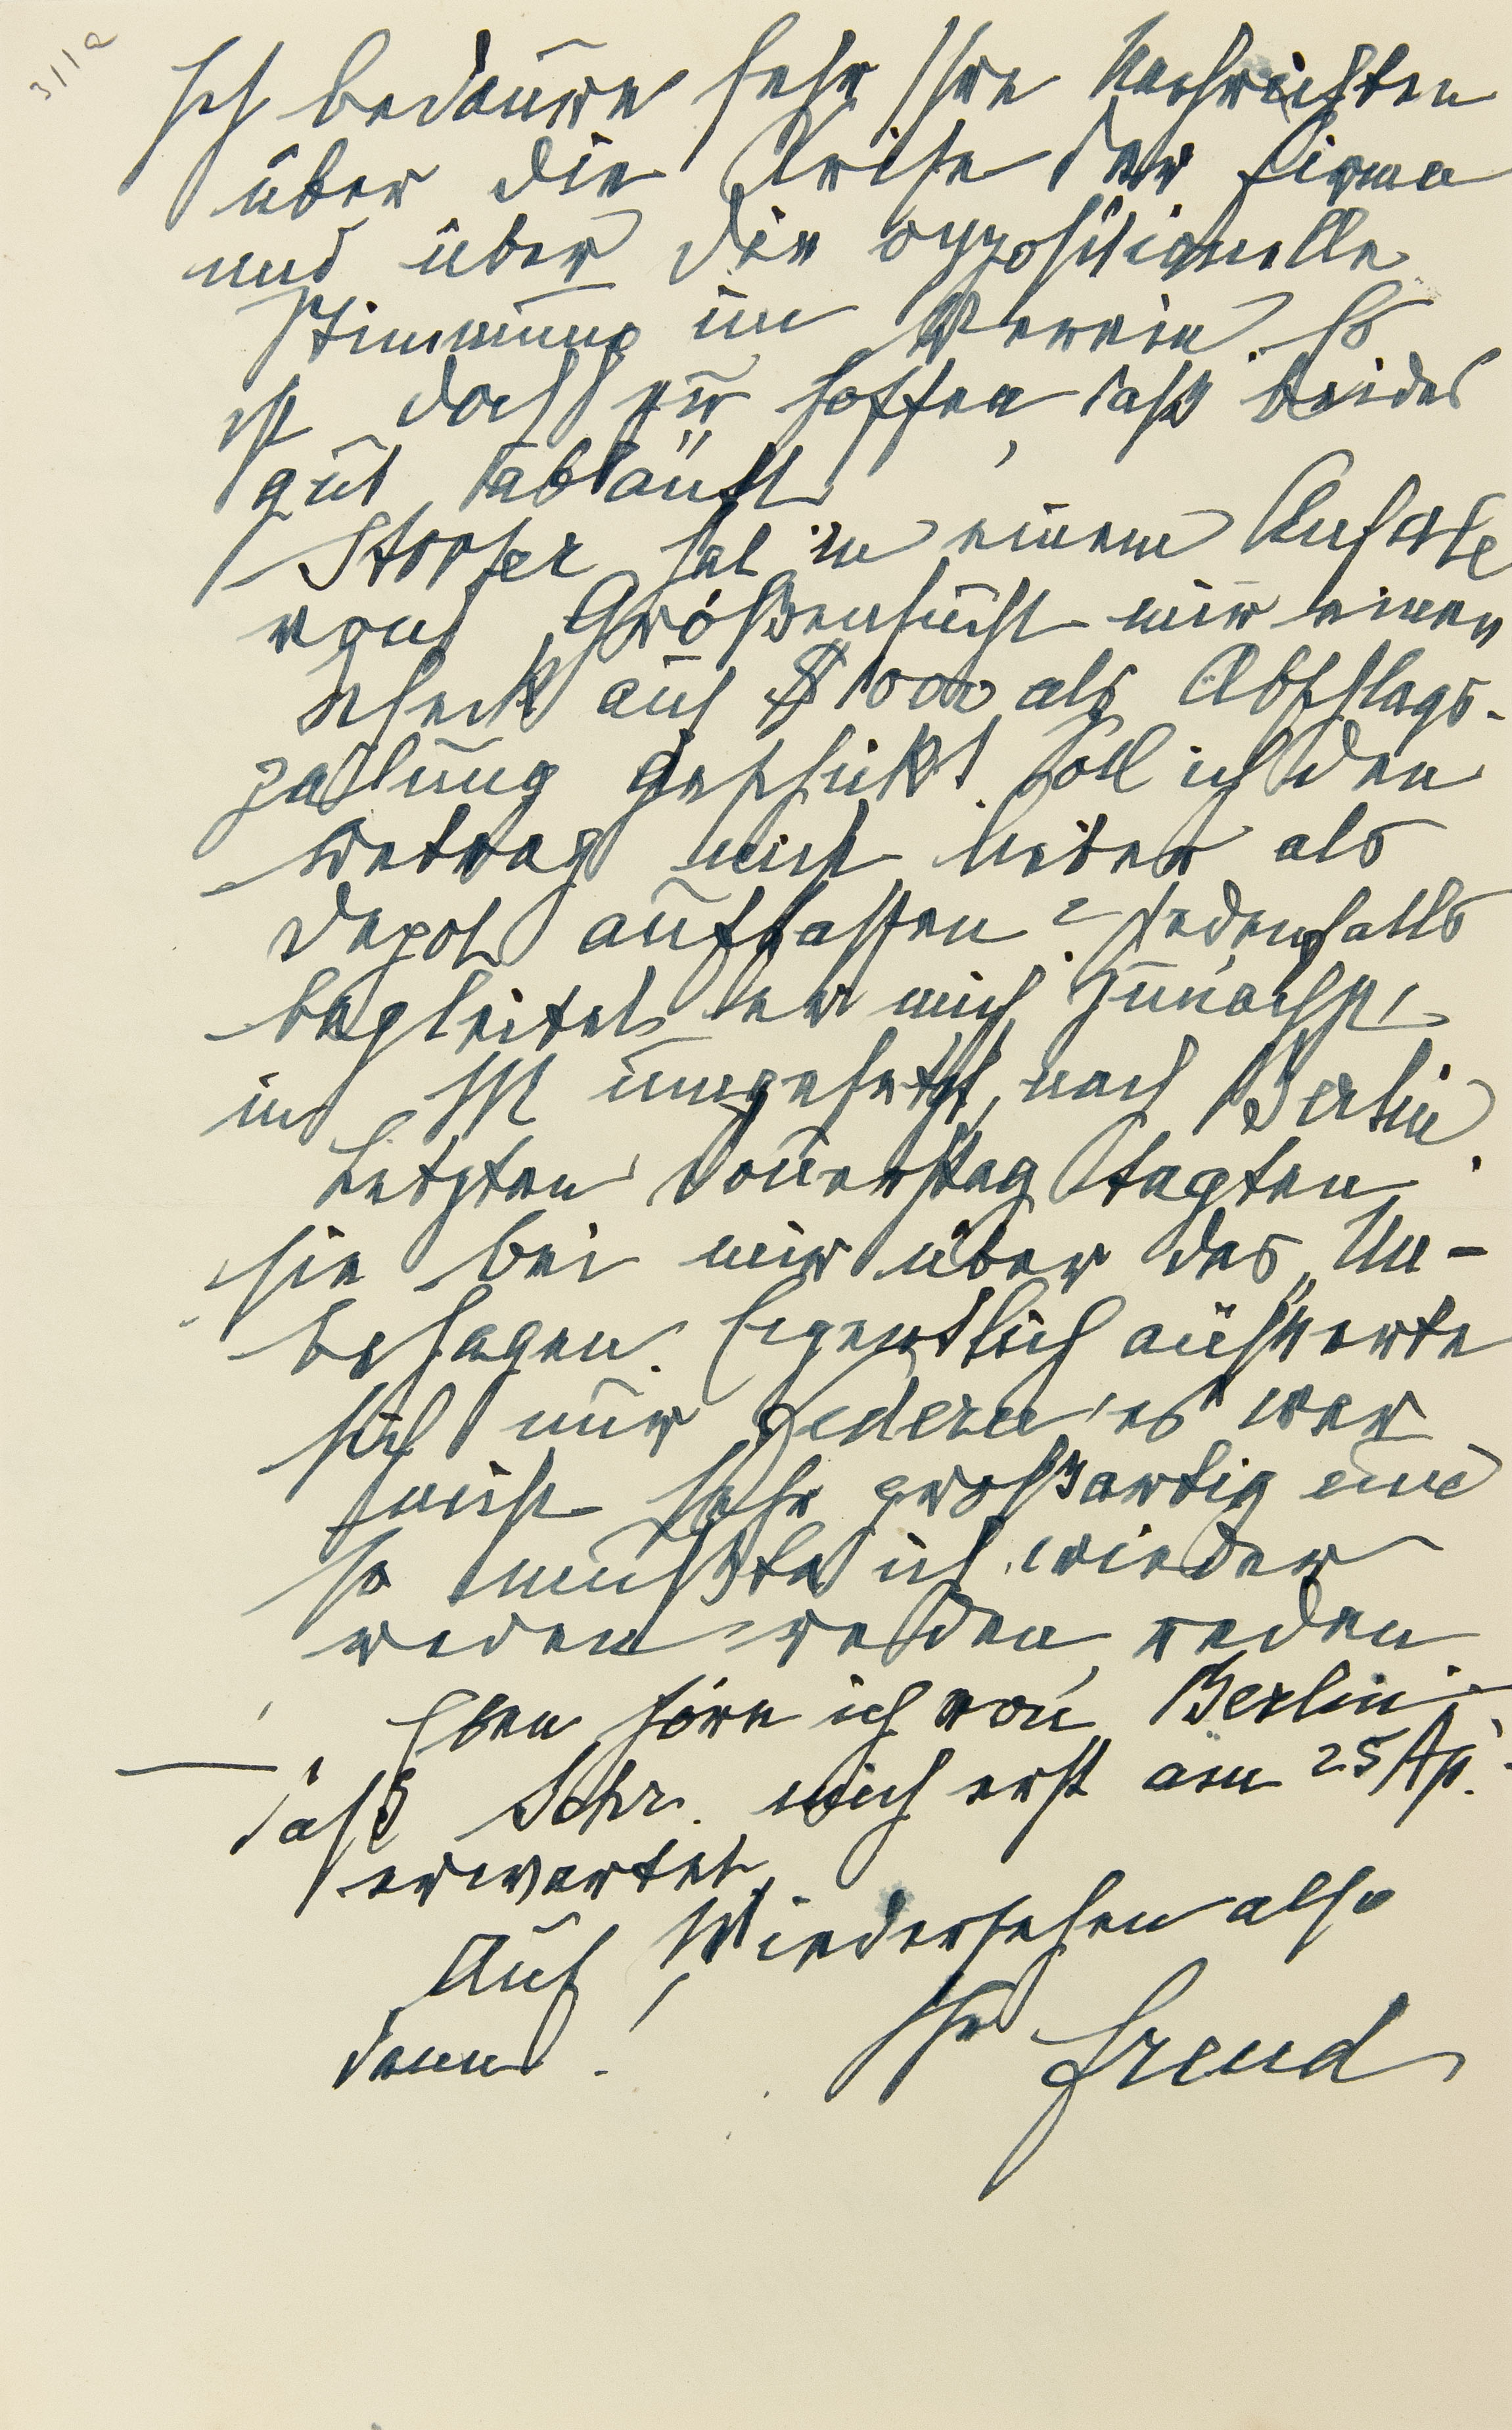 311a
Ich bedaure sehr Ihre Nachrichten
über die Krise der Firma
und über die oppositionelle
Stimmung im Verein. Es
ist doch zu hoffen, daß beides
gut abläuft.
Storfer hat in einem Anfalle
von Größensucht mir einen
Scheck auf $ 1000 als Abschlags-
zahlung geschickt. Soll ich den
Betrag nicht lieber als
Depot auffassen? Jedenfalls
begleitet er mich zunächst,
in M umgesetzt, nach Berlin.
Letzten Donnerstag tagten
sie bei mir über das „Un-
behagen. Eigentlich äußerte
sich nur Federn, es war
nicht sehr großartig und
so mußte ich wieder
reden, reden, reden
Eben höre ich von Berlin,
daß Schr. mich erst am 25 Ap.
erwartet.
Auf Wiedersehen also
dann!
Ihr Freud